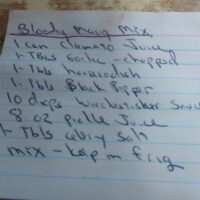 Bloody Mary Mix
1 can Clamato Juice
1-Tbls Garlic - chopped
1-Tbls horseradish
1-Tbls Black Pepper
10 dops Worchestisher Sauce
8 oz pickle Juice
1-Tbls celery Salt
mix - keep in frig